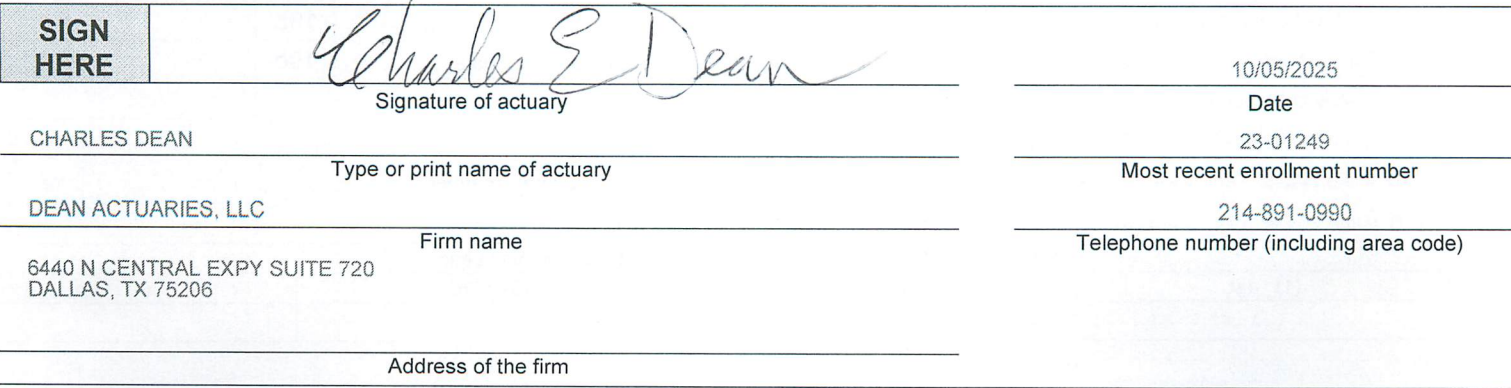 SIGN
HERE
Charles E Dean
10/05/2025
Signature of actuary
Date
CHARLES DEAN
23-01249
Type or print name of actuary
Most recent enrollment number
DEAN ACTUARIES, LLC
214-891-0990
Firm name
Telephone number (including area code)
6440 N CENTRAL EXPY SUITE 720
DALLAS, TX 75206
Address of the firm